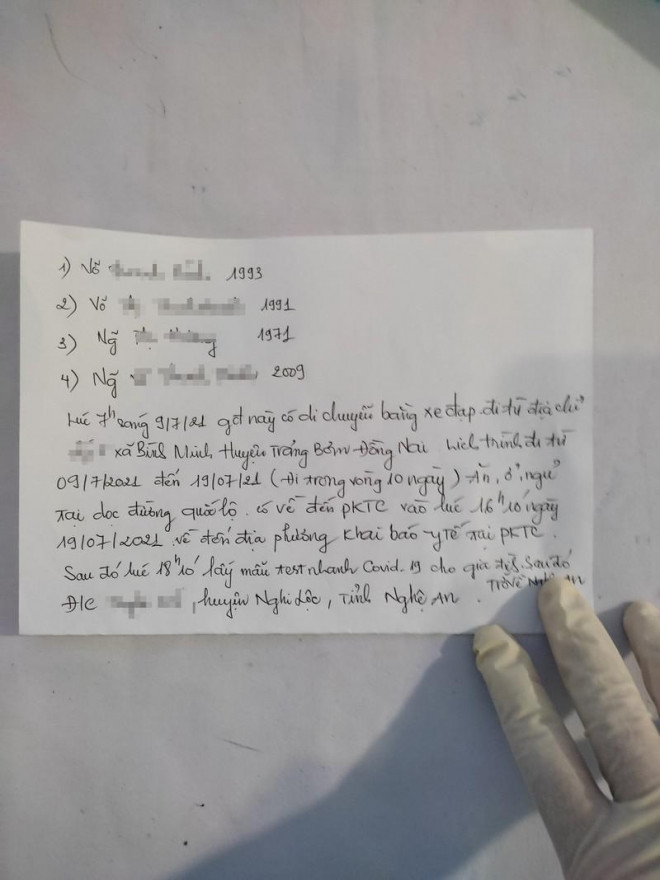 1) Võ 1993
2) Võ 1991
3) Ng̃ 1971
4) Ng̃ 2009
Lúc 7h sáng 9/7/21 gđ này có di chuyển bằng xe đạp đi từ địa chỉ
xã Bình Minh Huyện Trảng Bơm Đồng Nai Lịch trình đi từ
09/7/2021 đến 19/07/21 (Đi trong vòng 10 ngày) Ăn, ở, ngủ
tại dọc đường quốc lộ. có về đến PKTC vào lúc 16h10 ngày
19/07/2021 về đến địa phương khai báo y tế tại PKTC.
Sau đó lúc 18h10 lấy mẫu test nhanh Covid-19 cho gia đình. Sau đó
Trở về Nghệ An
Đ/C , huyện Nghi Lộc, Tỉnh Nghệ An.